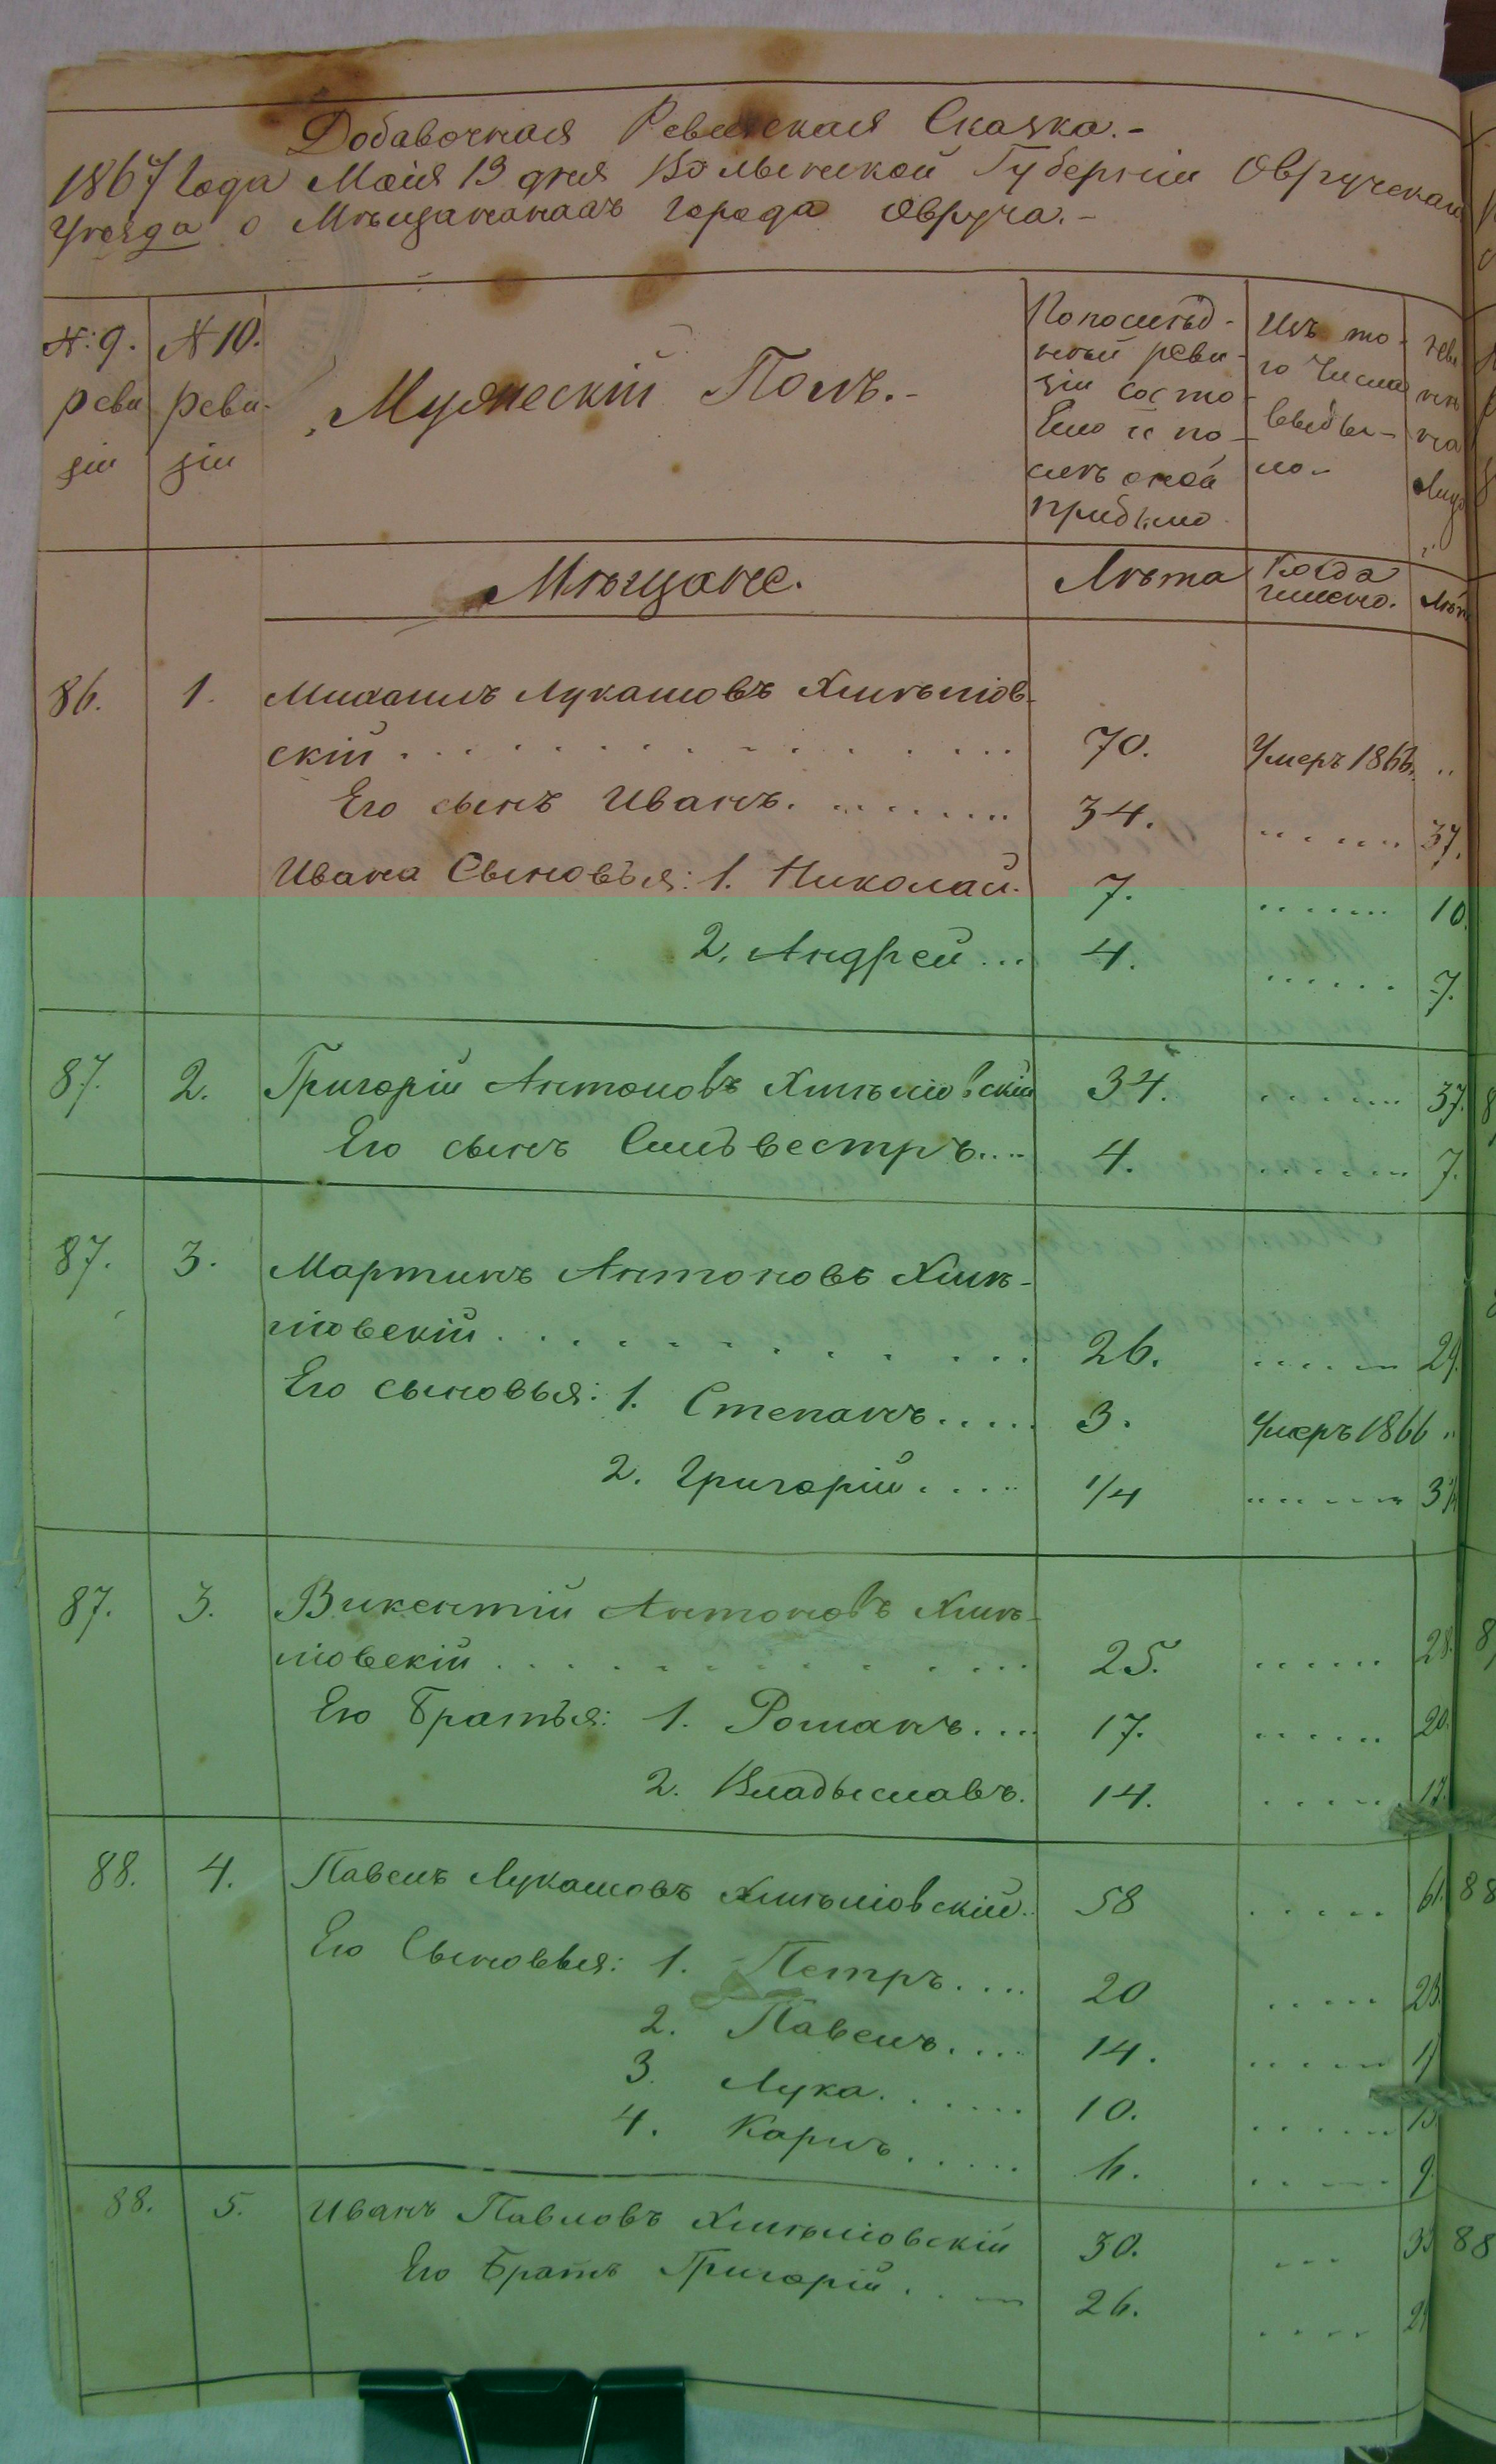 Добавочная Ревизская Сказка.-
1867 Года Маія 13 дня Волынской Губерніи Овручскаго
Уѣзда о Мѣщанахъ города Овруча.-
N: 9. реви зіи
N 10. реви- зіи
Мужескій Полъ.-
По послѣд-
ней реви-
зіи состо-
яло и по-
слѣ оной
прибыло
Изъ то-
го числа
выбы-
ло.-
на
лицо
Мѣщане. Лѣта Когда
именно. Лѣта
86. 1. Михаилъ Лукашовъ Хмѣлѣов-
скій . . . . . . . . . . . 70. Умеръ 1866. ..
Его сынъ Иванъ. ........ 34. ...... 37.
Ивана Сыновья: 1. Николай. 7. ...... 10.
2. Андрей ... 4. ...... 7.
87. 2. Григорій Антоновъ Хмѣлѣовскій 34. ...... 37.
Его сынъ Сильвестръ.... 4. ...... 7.
87. 3. Мартинъ Антоновъ Хмѣ-
лѣовскій . . . . . . . . . . . 26. ...... 29.
Его сыновья: 1. Степанъ..... 3. Умеръ 1866 ..
2. Григорій..... 1/4 ...... 3 1/4
87. 3. Викентій Антоновъ Хмѣ-
лѣовскій . . . . . . . . . . . 25. ...... 28.
Его Братья: 1. Романъ.... 17. ...... 20.
2. Владыславъ. 14. ..... 17.
88. 4. Павелъ Лукашовъ Хмѣлѣовскій.. 58 ..... 61.
Его Сыновья: 1. Петръ.... 20 ..... 23.
2. Павелъ.... 14. ..... 17
3. Лука....... 10. ...... 13
4. Карлъ...... 6. ..... 9.
88. 5. Иванъ Павловъ Хмѣлѣовскій 30. ... 33
Его Братъ Григорій.... 26. .... 29
88
88